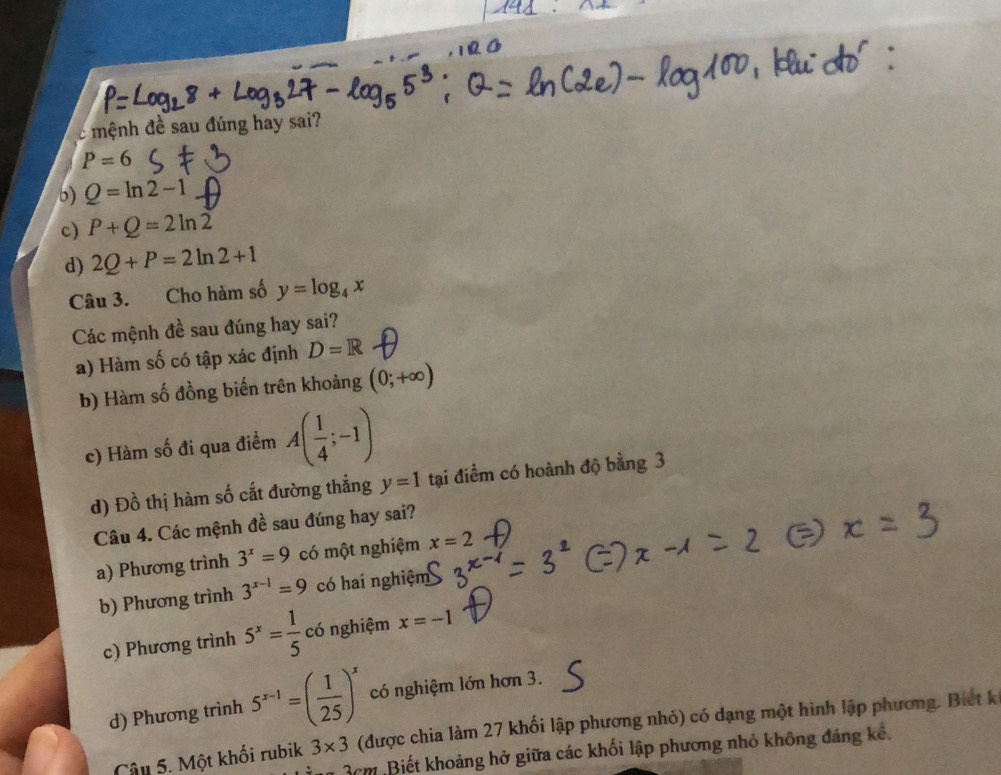 P = Log₂8 + Log₃27 - log₅5³; Q = ln(2e) - log100, khi đó:
mệnh đề sau đúng hay sai?
P = 6 S ≠ 3
b) Q = ln 2 - 1 Đ
c) P + Q = 2 ln 2
d) 2Q + P = 2 ln 2 + 1
Câu 3. Cho hàm số y = log₄ x
Các mệnh đề sau đúng hay sai?
a) Hàm số có tập xác định D = ℝ Đ
b) Hàm số đồng biến trên khoảng (0; +∞)
c) Hàm số đi qua điểm A(1/4; -1)
d) Đồ thị hàm số cắt đường thẳng y = 1 tại điểm có hoành độ bằng 3
Câu 4. Các mệnh đề sau đúng hay sai?
a) Phương trình 3ˣ = 9 có một nghiệm x = 2 Đ
b) Phương trình 3ˣ⁻¹ = 9 có hai nghiệm S 3ˣ⁻¹ = 3² ⇔ x - 1 = 2 ⇔ x = 3
c) Phương trình 5ˣ = 1/5 có nghiệm x = -1 Đ
d) Phương trình 5ˣ⁻¹ = (1/25)ˣ có nghiệm lớn hơn 3. S
Câu 5. Một khối rubik 3×3 (được chia làm 27 khối lập phương nhỏ) có dạng một hình lập phương. Biết
3cm. Biết khoảng hở giữa các khối lập phương nhỏ không đáng kể.